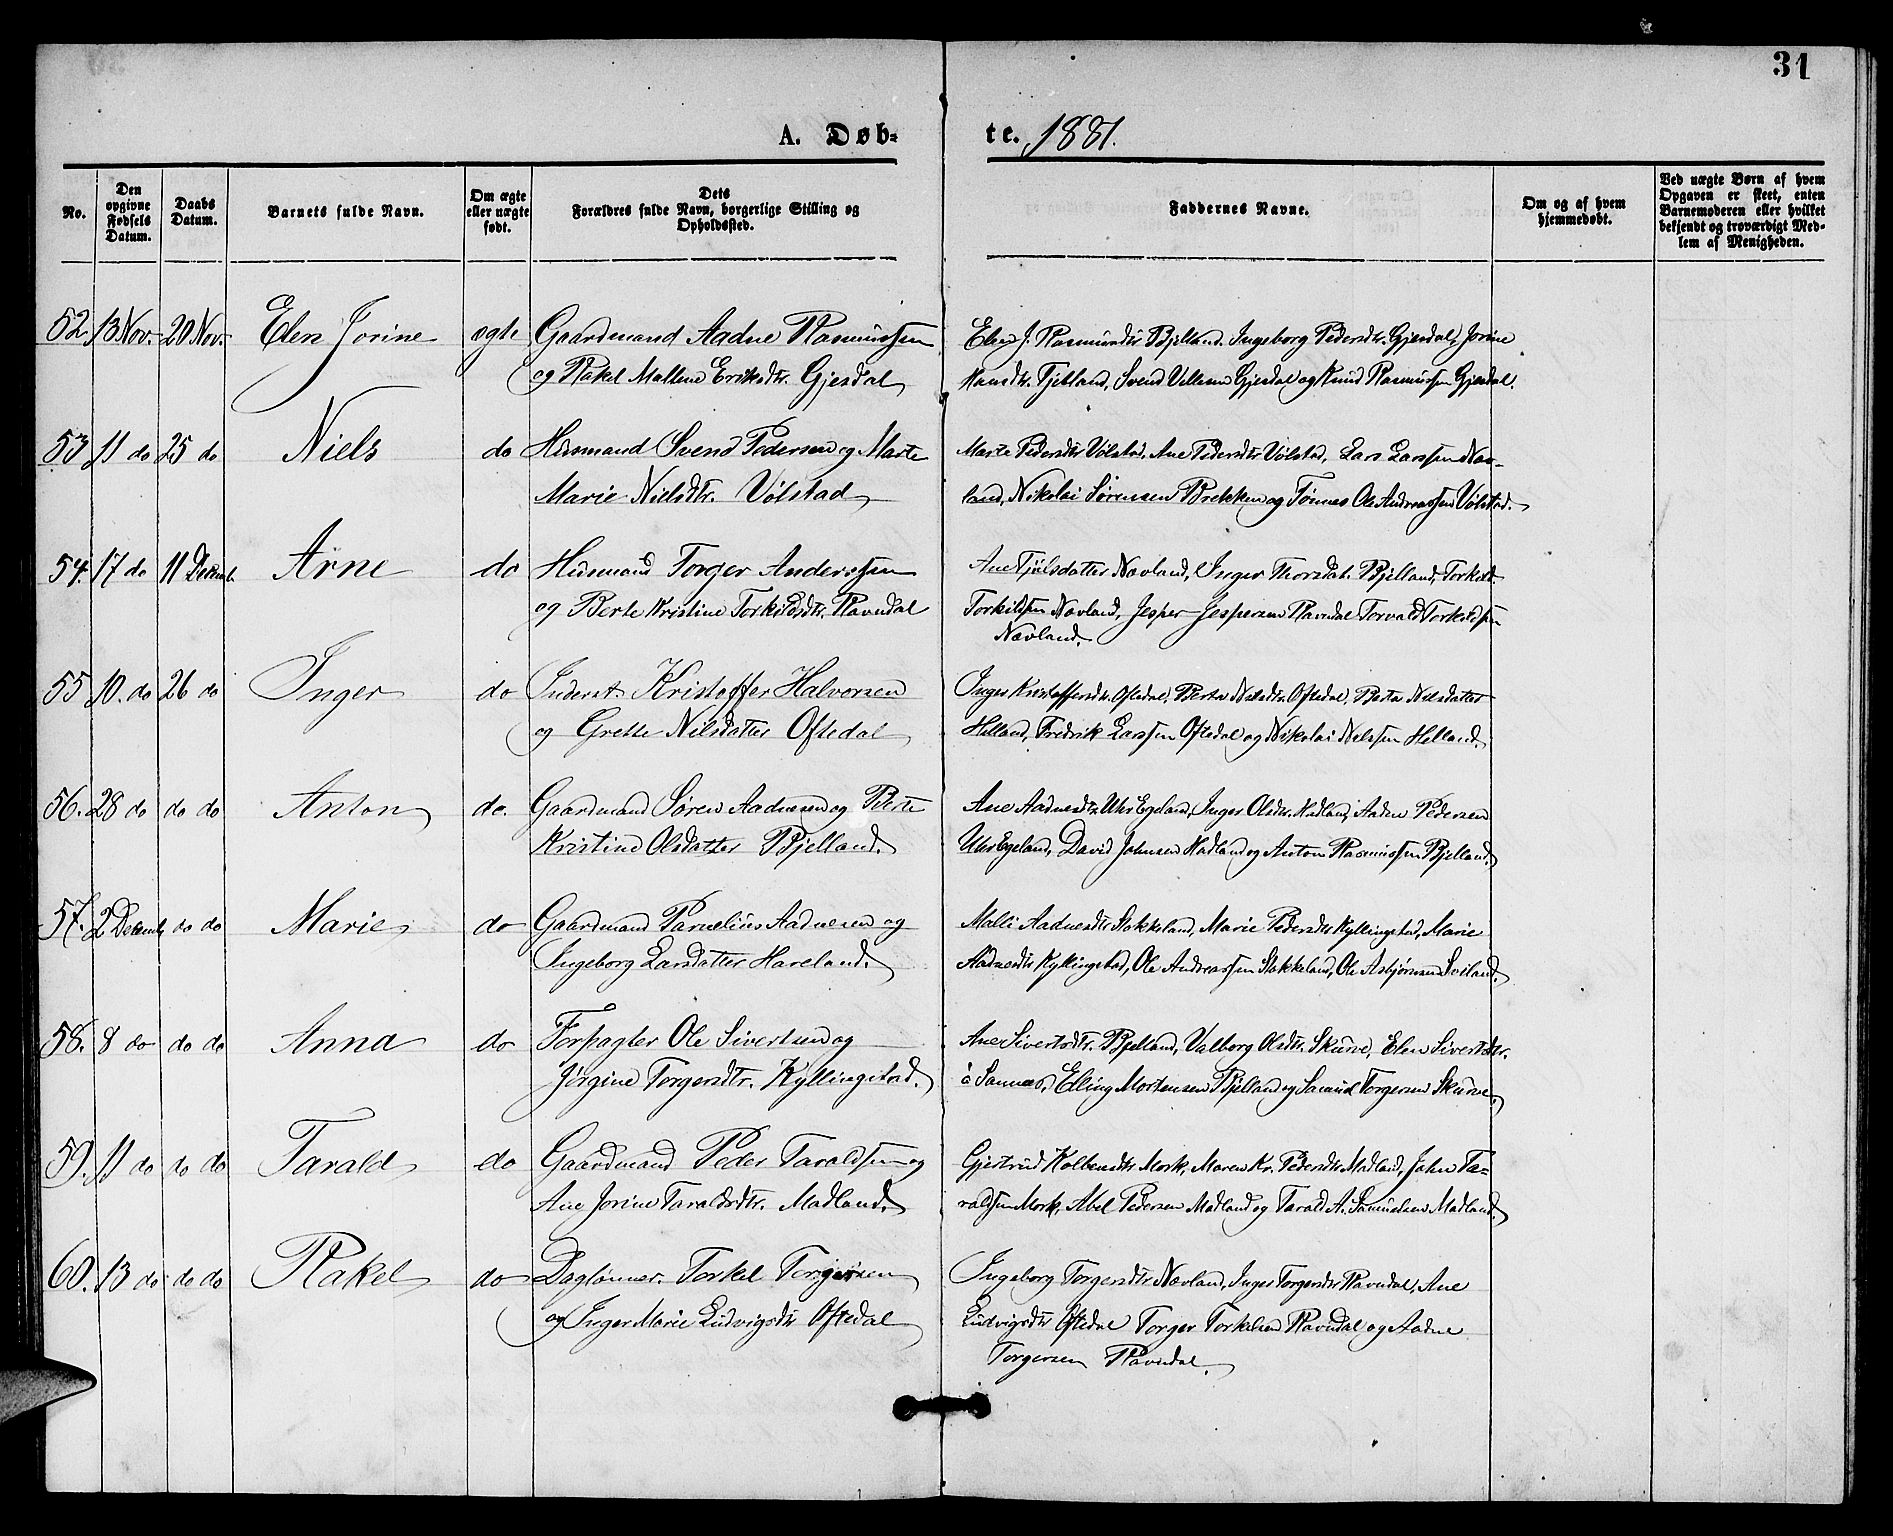 31
A. Døb- te. 1881.
No.
Den opgivne Fødsels Datum.
Daabs Datum.
Barnets fulde Navn.
Om ægte eller uægte født.
Dets Forældres fulde Navn, borgerlige Stilling og Opholdssted.
Faddernes Navne.
Om og af hvem hjemmedøbt.
Ved uægte Børn af hvem Opgaven er skeet, enten Barnemoderen eller hvilket bekjendt og troværdigt Medlem af Menigheden.
52. 13 Nov. 20 Nov. Elen Jorine ægte Gaardmand Aadne Rasmussen Elen J. Rasmusdtr Bjelland. Ingeborg Pedersdtr. Gjesdal, Jorine
og Rakel Mallene Eriksdtr. Gjesdal Hansdtr. Fjelland, Svend Villesen Gjesdal og Knud Rasmussen Gjesdal.
53. 11 do 25 do Niels do Husmand Svend Pedersen og Marte Marta Pedersdtr Vølstad. Ane Pedersdtr Vølstad, Lars Larssen Næv-
Marie Nielsdtr. Vølstad land, Nikolai Sørensen Brekken og Tønnes Ole Andreassen Vølstad.
54. 17 do 11 Decemb. Arne do Husmand Torger Anderssen Ane Tjølsdatter Nævland, Inger Thorsdat. Bjelland, Torkild
og Berte Kristine Torkildsdtr. Ravndal Torkildsen Nævland, Jesper Jespersen Ravndal Torvald Torkildsen
Nævland.
55 10. do 26 do Inger do Inderst. Kristoffer Halvorsen Inger Kristoffersdtr. Oftedal, Berta Nilsdtr. Oftedal, Berta Nilsdatter
og Grette Nilsdatter Oftedal Helland, Fredrik Larssen Oftedal og Nikolai Nilssen Helland.
56. 28 do do do Anton do. Gaardmand Søren Aadnesen og Berte Ane Aadnesdtr. Utr. Egeland, Inger Olsdtr. Madland, Aaden Pedersen
Kristine Olsdatter Bjelland. Utr. Egeland, David Johnsen Madland og Anton Rasmussen Bjelland.
57. 2 Decemb do do Marie do Gaardmand Parnelius Aadnesen og Malli Aadnesdtr Stokkeland, Marie Pedersdtr Kyllingstad, Marie
Ingeborg Larsdatter Haveland. Aadnesdtr Kyllingstad, Ole Andreassen Stokkeland, Ole Asbjørnsen Sviland.
58. 8 do do do Anna do Forpagter Ole Sivertsen og Ane Sivertsdtr. Bjelland, Valborg Olsdtr. Skurve, Elen Sivertsdtr.
Jørgine Torgersdtr. Kyllingstad. å Sannæs, Elling Mortensen Bjelland og Samuel Torgersen Skurve.
59. 11 do do do Tarald do Gaardmand Peder Taraldsen og Gjertrud Kolbensdtr Mork, Maren Kr. Pedersdtr Madland, John Ta-
Ane Jorine Taraldsdtr. Madland. raldsen Mork, Abel Pedersen Madland og Tarald A. Samuelsen Madland.
60. 13 do do do Rakel do Daglønner. Torkel Torgersen Ingeborg Torgersdtr Nævland, Inger Torgersdtr Ravndal, Ane
og Inger Marie Ludvigsdtr Oftedal Ludvigsdtr Oftedal Torger Torkelsen Ravndal og Aadne
Torgersen Ravndal.